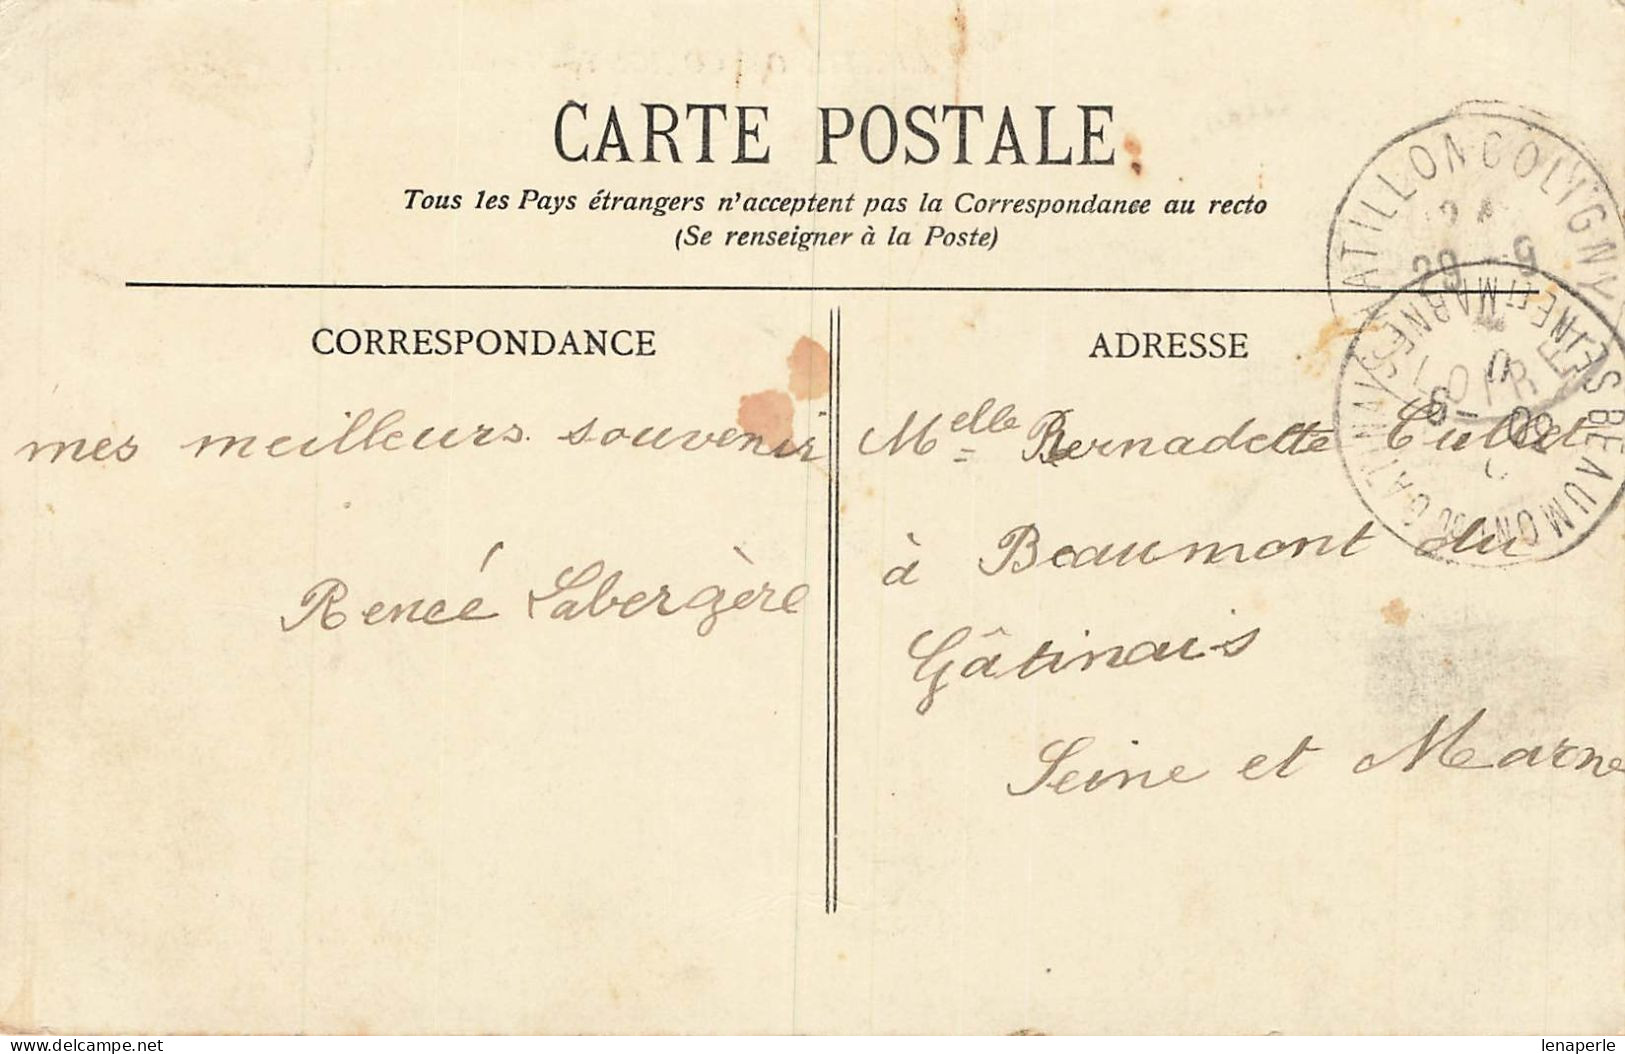 CARTE POSTALE
Tous les Pays étrangers n'acceptent pas la Correspondance au recto
(Se renseigner à la Poste)
CORRESPONDANCE
mes meilleurs souvenir
Renée Labergère
ADRESSE
Melle Bernadette
à Beaumont du
Gâtinais
Seine et Marne
ATILLON COLIGNY
29 - 9
LOIRET
BEAUMONT DU GATINAIS
SEINE ET MARNE
delcampe.net
lenaperle